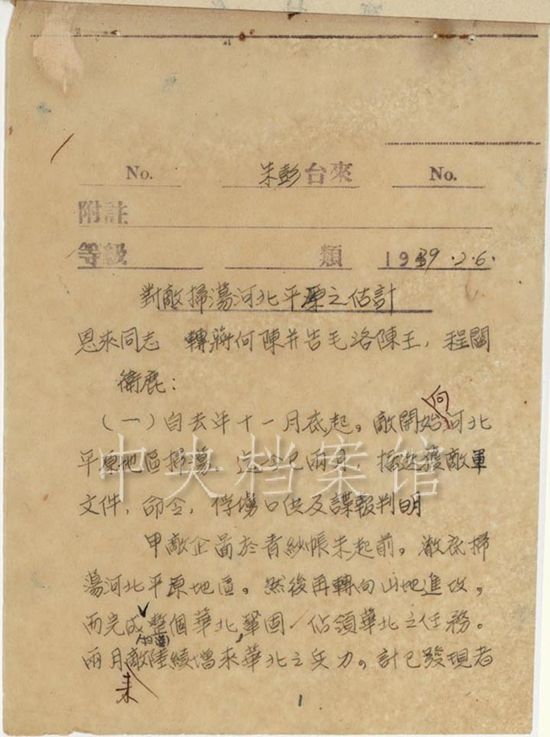 No. 朱彭台來 No.
附註
等級 類 1939.2.6.
對敵掃蕩河北平原之估計
恩來同志 轉蔣何陳并告毛洛陳王,程閻
衛鹿:
(一)自去年十一月底起。敵開始向河北
平原地區掃蕩 迄今已兩月,據迭獲敵軍
文件,命令,俘虜口供及諜報判明
甲敵企圖於青紗帳未起前。澈底掃
蕩河北平原地區。然後再轉向山地進攻。
而完成整個華北,鞏固佔領華北之任務。
兩月來敵陸續增來華北之兵力。計已發現者
1
中央档案馆